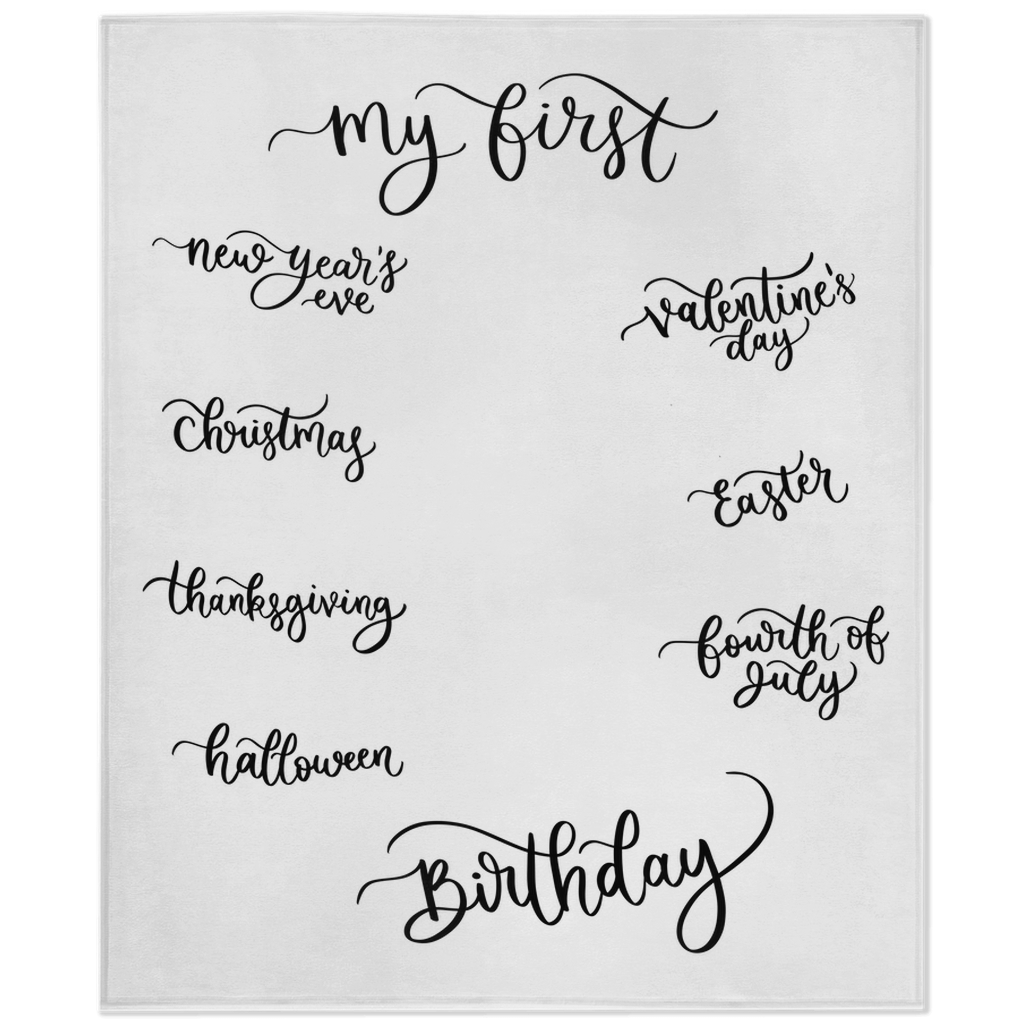 my first
new year's
eve
valentine's
day
Christmas
Easter
thanksgiving
fourth of
july
halloween
Birthday